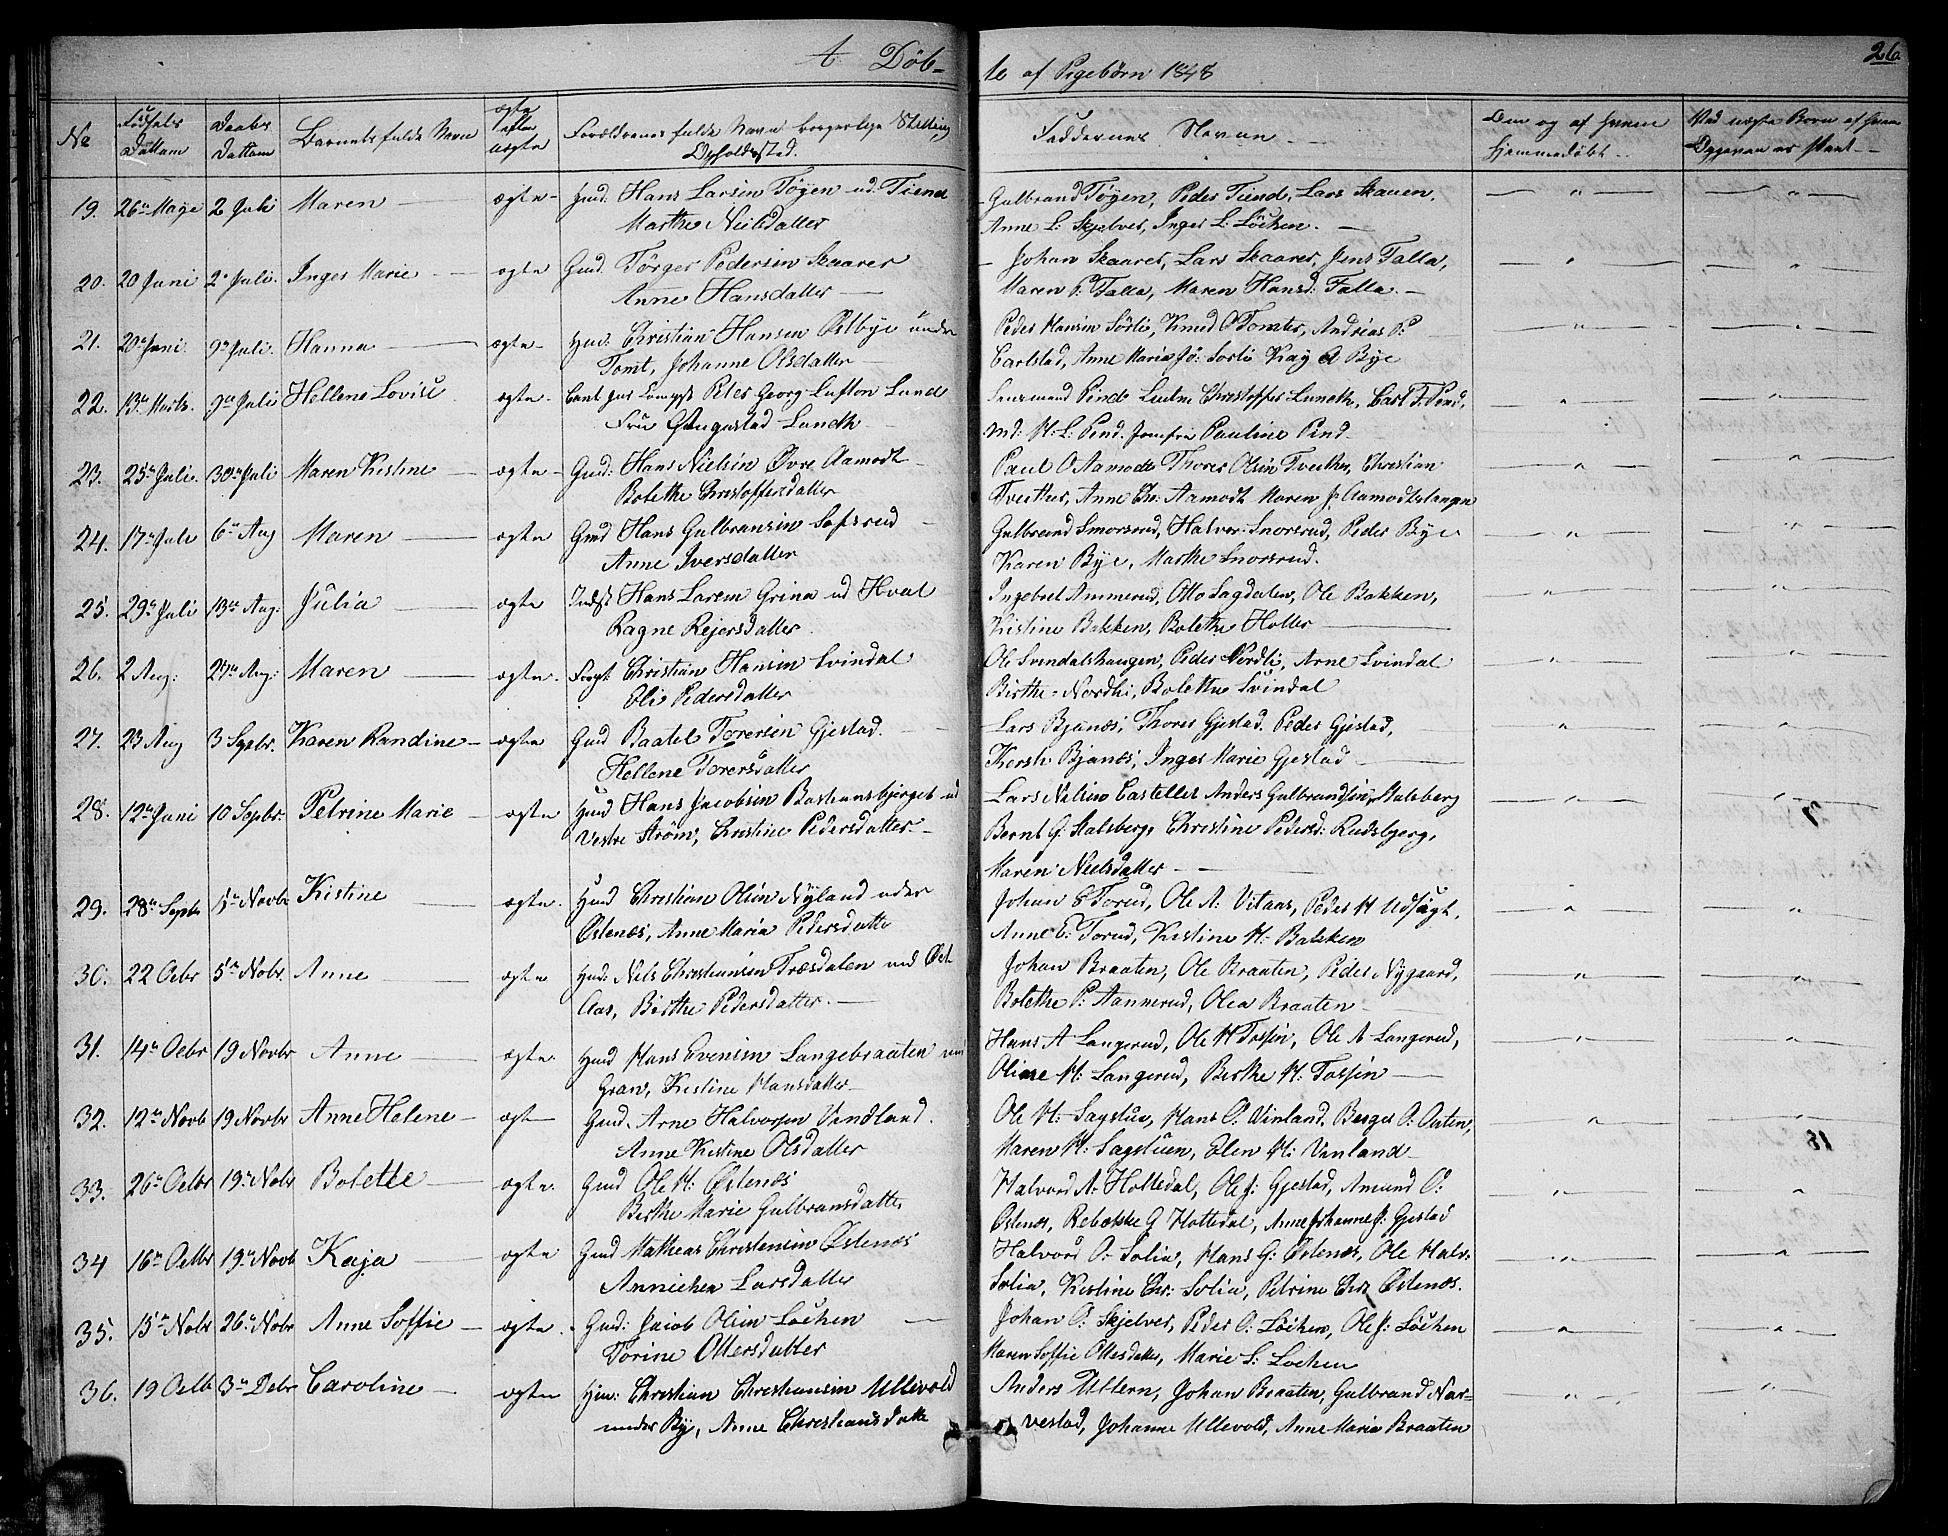 A. Døb-
te af Pigebørn 1848
26.
No
Fødsels Dattum
Daabs Dattum
Barnets fulde Navn
ægte eller uægte
Forældrenes fulde Navn borgerlige Stilling, Opholdssted.
Faddernes Navne
Om og af hvem hjemmedøbt
Ved uægte Børn af hvem Opgaven er skeet
19. 26de Maye 2 Juli Maren ægte Gmd. Hans Larsen Tøyen ud: Tiend
Marthe Nielsdatter
Gulbrand Tøyen, Peder Tiend, Lars Skauen,
Anne L: Skjelver, Inger L: Löchen.
20. 20 Juni 2 Juli. Inger Marie ægte Gmd. Törger Pedersen Skaarer
Anne Hansdatter
Johan Skaarer, Lars Skaarer, Jens Falla,
Maren P: Falla, Maren Hansd: Falla.
21. 20 Juni 9de Juli. Hanna ægte Huu: Christian Hansen Østbye under
Tomt, Johanne Olsdatter
Peder Hansen Sörli, Knud O Tomter, Andreas P:
Carlstad, Anne Maria Jö: Sorli Kay A Bye
22. 13de Marts. 9de Juli Hellene Lovise ægte Peter Georg Lufton Lund
Fru Lundh
Pind Christoffer Lundth, Carl F. Pind,
Md: M: L: Pind. Jomfru Pauline Pind
23. 25de Juli. 30de Juli Maren Kistine ægte Gmd: Hans Nielsen Øvre Aamodt
Bolethe Christoffersdatter
Paul O Aamodt Thorer Olsen Tveither, Christian
Tveither, Anne Chr: Aamodt Maren J: Aamodtslangen
24. 17de Juli 6te Aug Maren ægte Gmd Hans Gulbransen
Anne Iversdatter
Gulbrand Smorsrud, Halvor Snorsrud, Peder Bye
Karen Bye, Marthe Snorsrud.
25. 29de Juli 13de Aug: Julia ægte Indst Hans Larsen Grina ud Hval
Ragne Rejersdatter.
Ingebret Ammerud, Otto Sagdalen, Ole Bakken,
Kistine Bakken, Bolethe Holter
26. 2 Aug: 27de Aug: Maren ægte Christian Hansen Svindal
Oli Pedersdatter
Ole Svendalshaugen, Peder Nordli, Arne Svindal
Birthe Nordhi, Bolette Svindal
27. 23 Aug 3 Sepbr. Karen Randine ægte Gmd Baatel Toresen Gjestad.
Hellene Torersdatter
Lars Bjanæs, Thorer Gjestad. Peder Gjestad,
Kersti Bjanæs, Inger Marie Gjestad
28. 12te Juni 10 Sepbr. Petrine Marie ægte Huud Hans Jacobsen Bastiansbjerget ud
Vestre Strøm, Christine Pedersdatter
Lars Nilsen Casteller Anders Gulbrandsen Stalsberg
Bernt G Stalsberg, Christine Pedersd: Rudsbjerg,
Maren Nielsdatter
29. 28de Septb 5te Novbr Kistine ægte. Huud Christian Olsen Nyland under
Østenæs, Anne Maria Pedersdatte
Johan E Torud, Ole A: Vitaas, Peder H Udsigt,
Anne E: Torud, Kistine H: Bakken
30. 22 Octbr 5te Nobr. Anne ægte Huud: Nils Christiansen Træsdalen ud Øst
Aas, Birthe Pedersdatter.
Johan Braaten, Ole Braaten, Peder Nygaard,
Bolethe P: Aamerud, Olea Braaten
31. 14de Octbr 19 Novbr Anne ægte Huud Hans Evensen Langebraaten und
Gran, Kistine Hansdatter
Hans A Langerud, Ole H Tossen, Ole A Langerud,
Oline H: Langerud, Birthe H: Tossen
32. 12te Novb 19 Novbr Anne Helene ægt Gmd. Arne Halvorsen Vendland.
Anne Kistine Olsdatter
Ole H: Sagstue, Hans O: Vinland, Berger O: Oúten,
Maren H: Sagstuen, Elen H: Vinland
33. 26de Octbr 19de Nobr Bolette ægte. Gmd Ole H: Østenæs
Birthe Marie Gulbransdatte.
Halvord A: Holtedal, Ole J: Gjestad, Amund O:
Østenæs, Rebekke G Holtedal, Anne Johanne J: Gjestad
34 16de Octbr 19de Novb Kaja ægte Gmd Mathias Christensen Østenæs
Annichen Larsdatter
Halvord O: Solia, Hans G: Østenæs, Ole Halv:
Solia, Kistine Chr: Solia, Petrine Chr Østenæs.
35. 15de Nobr 26de Nobr Anne Soffie ægte. Gmd: Jacob Olsen Löchen
Torine Ottersdatter
Johan O: Skjelver, Peder O: Löchen, Ole J: Löchen
Maren Soffie Ottesdatter, Marie L: Lochen
36. 19 Octb 3de Debr Caroline ægte Huu: Christian Christiansen Ullevold
under By, Anne Christiansdatte
Anders Ullern, Johan Braaten, Gulbrand Nar-
vestad, Johanne Ullevold, Anne Maria Braaten